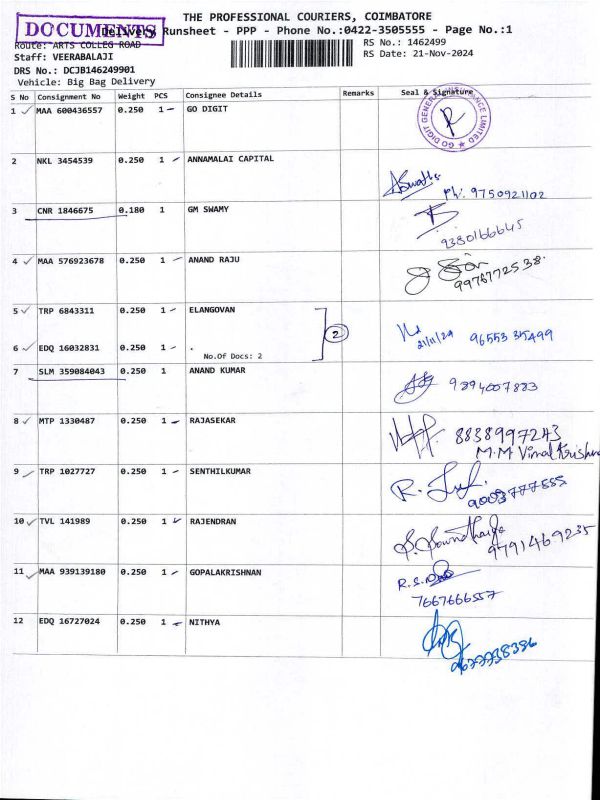 THE PROFESSIONAL COURIERS, COIMBATORE
DOCUMENTS
Delivery Runsheet - PPP - Phone No.:0422-3505555 - Page No.:1
Route: ARTS COLLEG ROAD
RS No.: 1462499
Staff: VEERABALAJI
RS Date: 21-Nov-2024
DRS No.: DCJB146249901
Vehicle: Big Bag Delivery
S No Consignment No Weight PCS Consignee Details Remarks Seal & Signature
1 MAA 600436557 0.250 1 GO DIGIT
GO DIGIT GENERAL INSURANCE LIMITED
2 NKL 3454539 0.250 1 ANNAMALAI CAPITAL
Ph: 9750921102
3 CNR 1846675 0.180 1 GM SWAMY
9380166645
4 MAA 576923678 0.250 1 ANAND RAJU
9976772538
5 TRP 6843311 0.250 1 ELANGOVAN
2
21/11/24 9655335499
6 EDQ 16032831 0.250 1 .
No.Of Docs: 2
7 SLM 359084043 0.250 1 ANAND KUMAR
9894007883
8 MTP 1330487 0.250 1 RAJASEKAR
8838997243
M.M Vimal Krishna
9 TRP 1027727 0.250 1 SENTHILKUMAR
9003777555
10 TVL 141989 0.250 1 RAJENDRAN
9791469235
11 MAA 939139180 0.250 1 GOPALAKRISHNAN
7667666557
12 EDQ 16727024 0.250 1 NITHYA